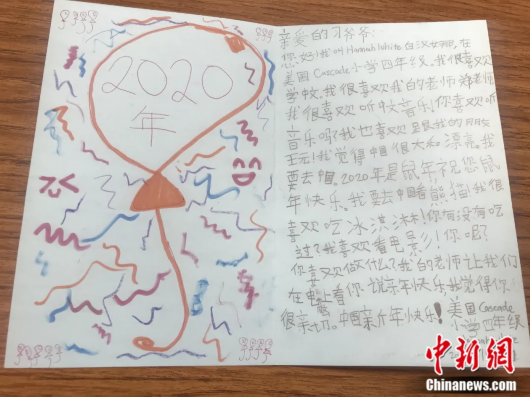 2020
年
亲爱的习爷爷:
您好!我叫Hannah White白汉娜,在
美国Cascade小学四年级,我很喜欢
学校,我很喜欢我的老师
我很喜欢听收音乐!你喜欢听
音乐吗?我也喜欢跟我的朋友
玩!我觉得中国很大和漂亮。我
要去中国。2020年是鼠年祝您鼠
年快乐。我要去中国看熊猫!我很
喜欢吃冰淇淋!你有没有吃
过?我喜欢看电影!你呢?
你喜欢做什么?我的老师让我们
在电上看你说亲年快乐我觉得你
很亲切。中国亲年快乐!美国Cascade
小学四年级
中新网
Chinanews.com